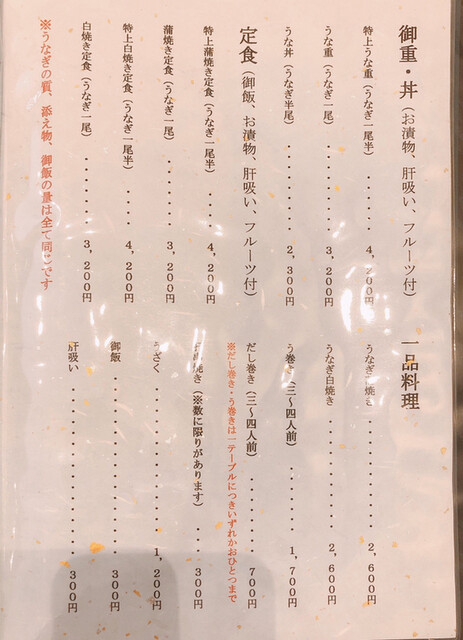 御重・丼（お漬物、肝吸い、フルーツ付）
特上うな重（うなぎ一尾半）・・・・・・・4,200円
うな重（うなぎ一尾）・・・・・・・・・3,200円
うな丼（うなぎ半尾）・・・・・・・・・2,300円
定食（御飯、お漬物、肝吸い、フルーツ付）
特上蒲焼き定食（うなぎ一尾半）・・・・4,200円
蒲焼き定食（うなぎ一尾）・・・・・・・3,200円
特上白焼き定食（うなぎ一尾半）・・・・4,200円
白焼き定食（うなぎ一尾）・・・・・・・3,200円
※うなぎの質、添え物、御飯の量は全て同じです
一品料理
うなぎ焼き・・・・・・・・・・・2,600円
うなぎ白焼き・・・・・・・・・・・2,600円
う巻き（三～四人前）・・・・・・・1,700円
だし巻き（三～四人前）・・・・・・・700円
※だし巻き・う巻きは一テーブルにつきいずれかおひとつまで
焼き（※数に限りがあります）・・・300円
うざく・・・・・・・・・・・・・・1,200円
御飯・・・・・・・・・・・・・・・・300円
肝吸い・・・・・・・・・・・・・・・300円